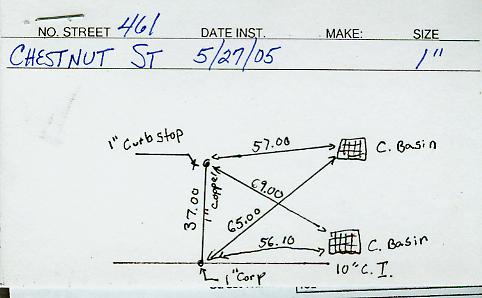 NO. STREET 461 DATE INST. MAKE: SIZE
CHESTNUT ST 5/27/05 1"
1" Curb Stop
57.00
C. Basin
37.00
1" Copper
69.00
65.00
56.10
C. Basin
10" C. I.
1" Corp